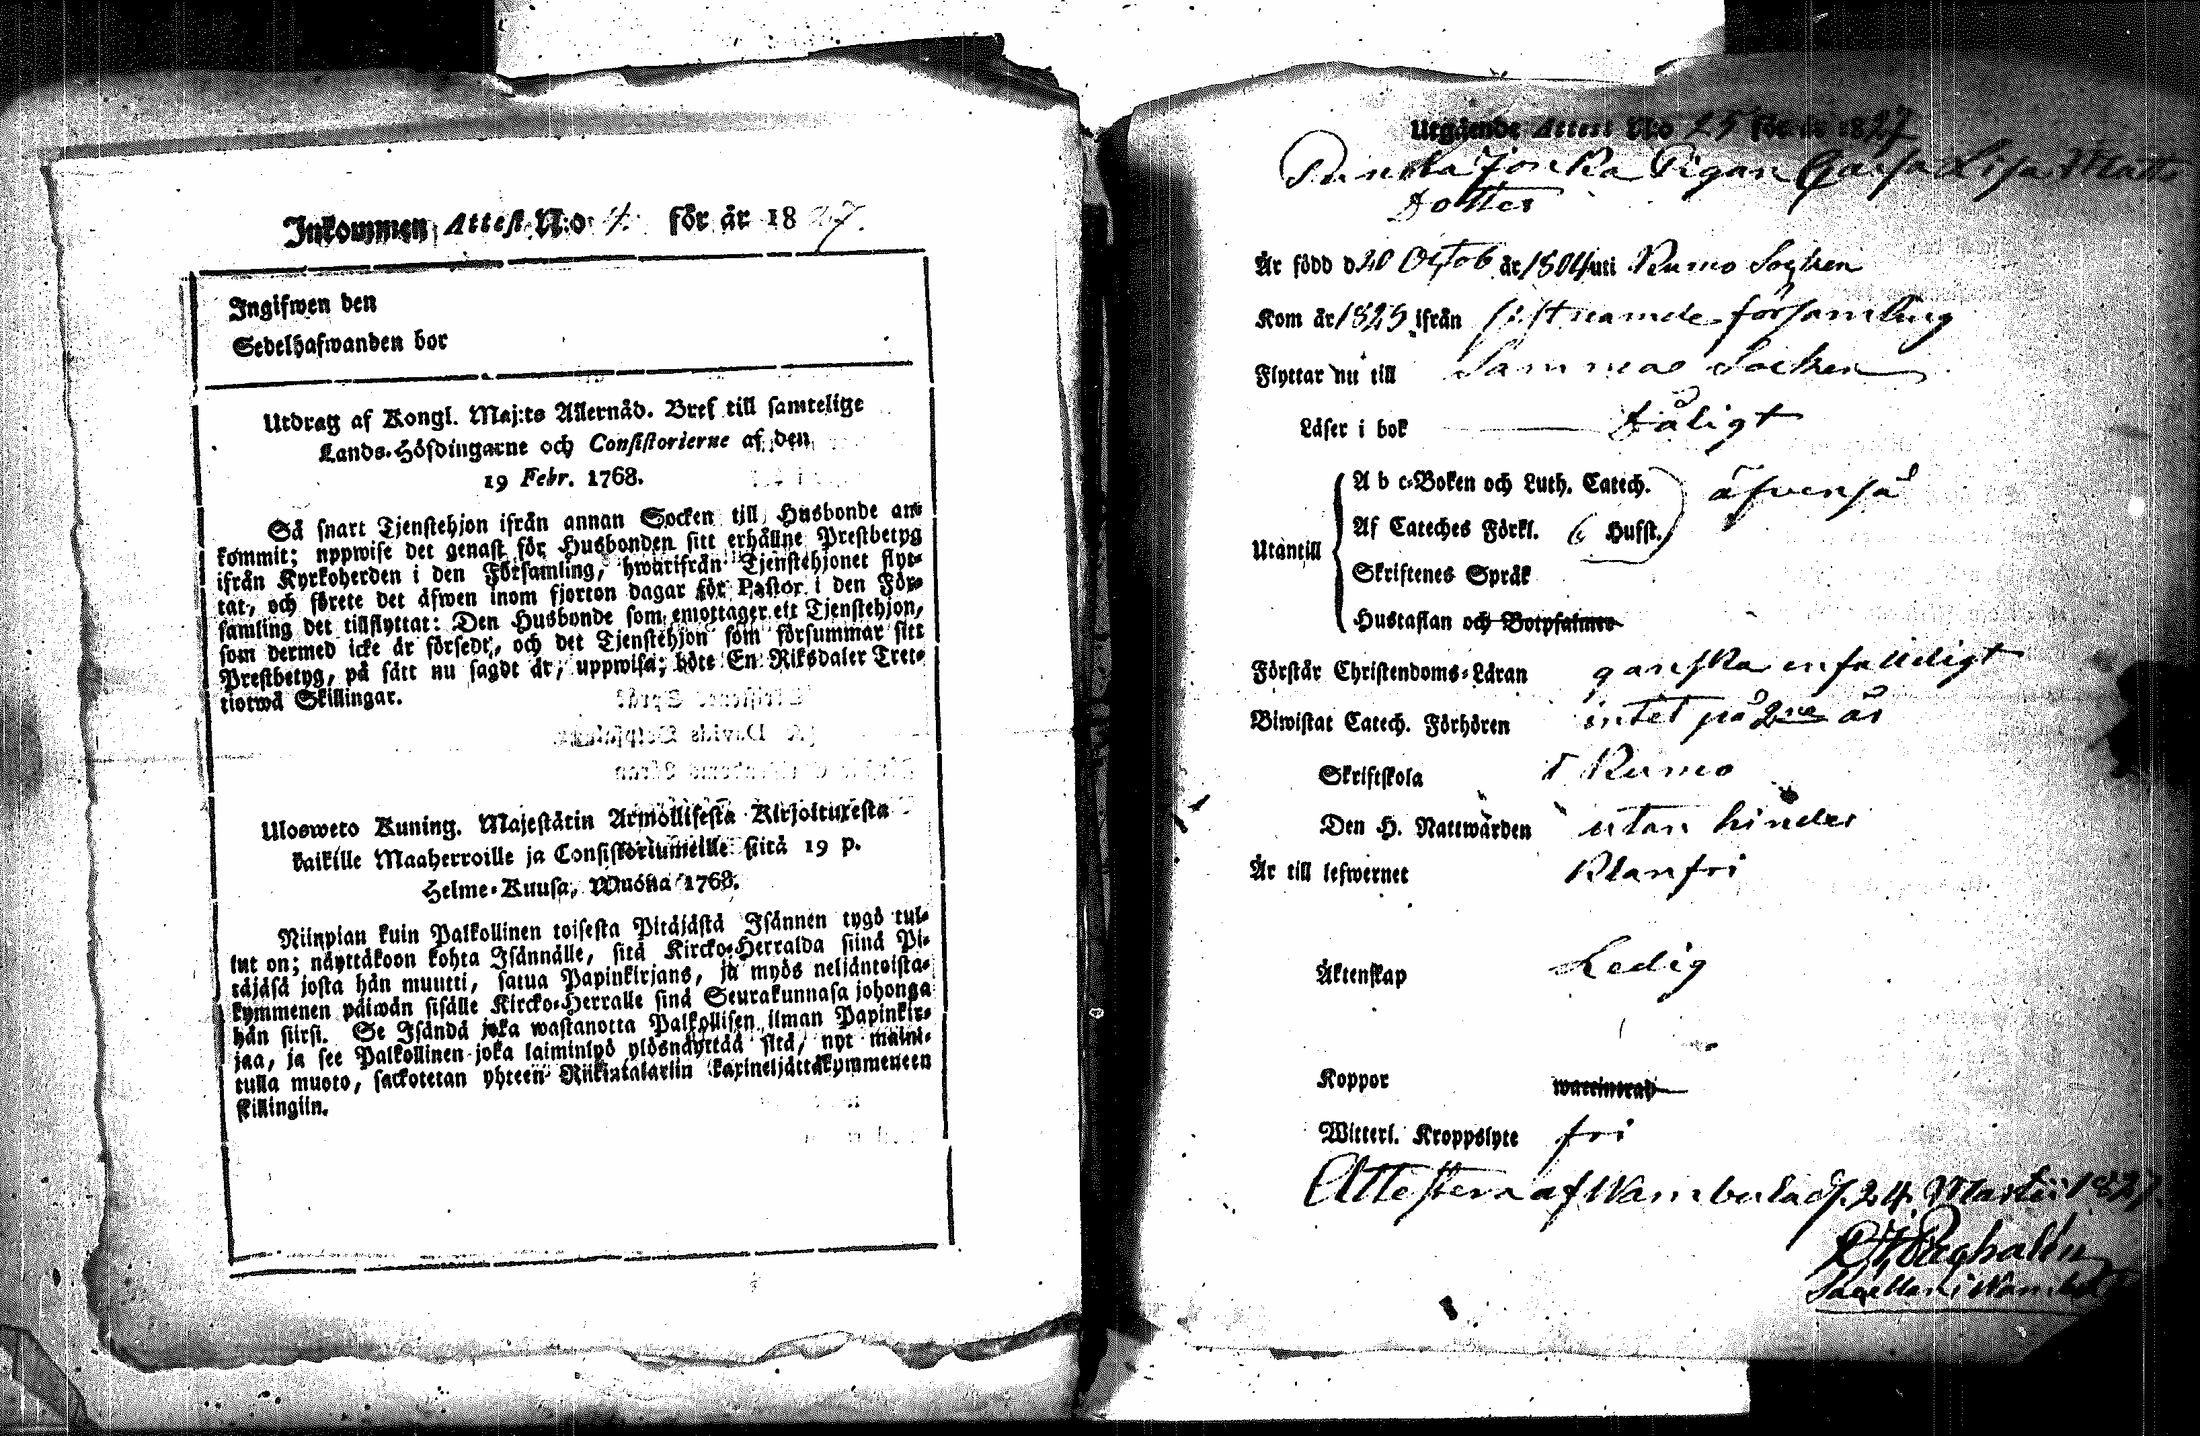 Inkommen Attest N:o 4. för år 1827.
Ingifwen den
Sedelhafwanden bor
Utdrag af Kongl. Maj:ts Allernåd. Bref till samtelige
Lands-Höfdingarne och Consistorierne af den
19 Febr. 1768.
Så snart Tjenstehjon ifrån annan Socken till Husbonde an-
kommit; uppwise det genast för Husbonden sitt erhållne Prestbetyg
ifrån Kyrkoherden i den Församling, hwarifrån Tjenstehjonet flyt-
tat, och förete det äfwen inom fjorton dagar för Pastor i den För-
samling det tillflyttat: Den Husbonde som emottager ett Tjenstehjon,
som dermed icke är försedt, och det Tjenstehjon som försummar sitt
Prestbetyg, på sätt nu sagdt är, uppwisa; böte En Riksdaler Tret-
tiotwå Skillingar.
Ulosweto Kuning. Majestätin Armollisesta Kirjoituxesta
kaikille Maaherroille ja Consistoriumeille siitä 19 p.
Helme-Kuusa, Wuonna 1768.
Niinpian kuin Palkollinen toisesta Pitäjästä Isännen tygö tul-
lut on; näyttäkoon kohta Isännälle, sitä Kircko-Herralda siinä Pi-
täjäsä josta hän muutti, saatua Papinkirjans, ja myös neljäntoista-
kymmenen päiwän sisälle Kircko-Herralle sinä Seurakunnasa johonga
hän siirsi. Se Isändä joka wastanotta Palkollisen ilman Papinkir-
jaa, ja see Palkollinen joka laiminlyö ylösnäyttää sitä, nyt maini-
tulla muoto, sackotetan yhteen Riikintalariin kaxineljättäkymmeneen
skillingiin.
Utgående Attest N:o 25 för år 1827
Jonka Pigan Caisa Lisa Matts
Dotter
Är född d 20 Octob år 1804 uti Kumo Socken
Kom år 1825 ifrån sistnämde församling
Flyttar nu till Samma Socken
Läser i bok Dåligt
Utantill
A b c-Boken och Luth. Catech. äfvenså
Af Cateches Förkl. 6 Hufst.
Skriftenes Språk
Hustaflan och Botpsalmer
Förstår Christendoms-Läran ganska enfalldigt
Biwistat Catech. Förhören intet på 2ne år
Skriftskola i Kumo
Den H. Nattwarden utan hinder
Är till lefwernet Klanfri
Äktenskap Ledig
Koppor
Witterl. Kroppslyte fri
Attesteras af Wambula d. 24 Martii 1827.